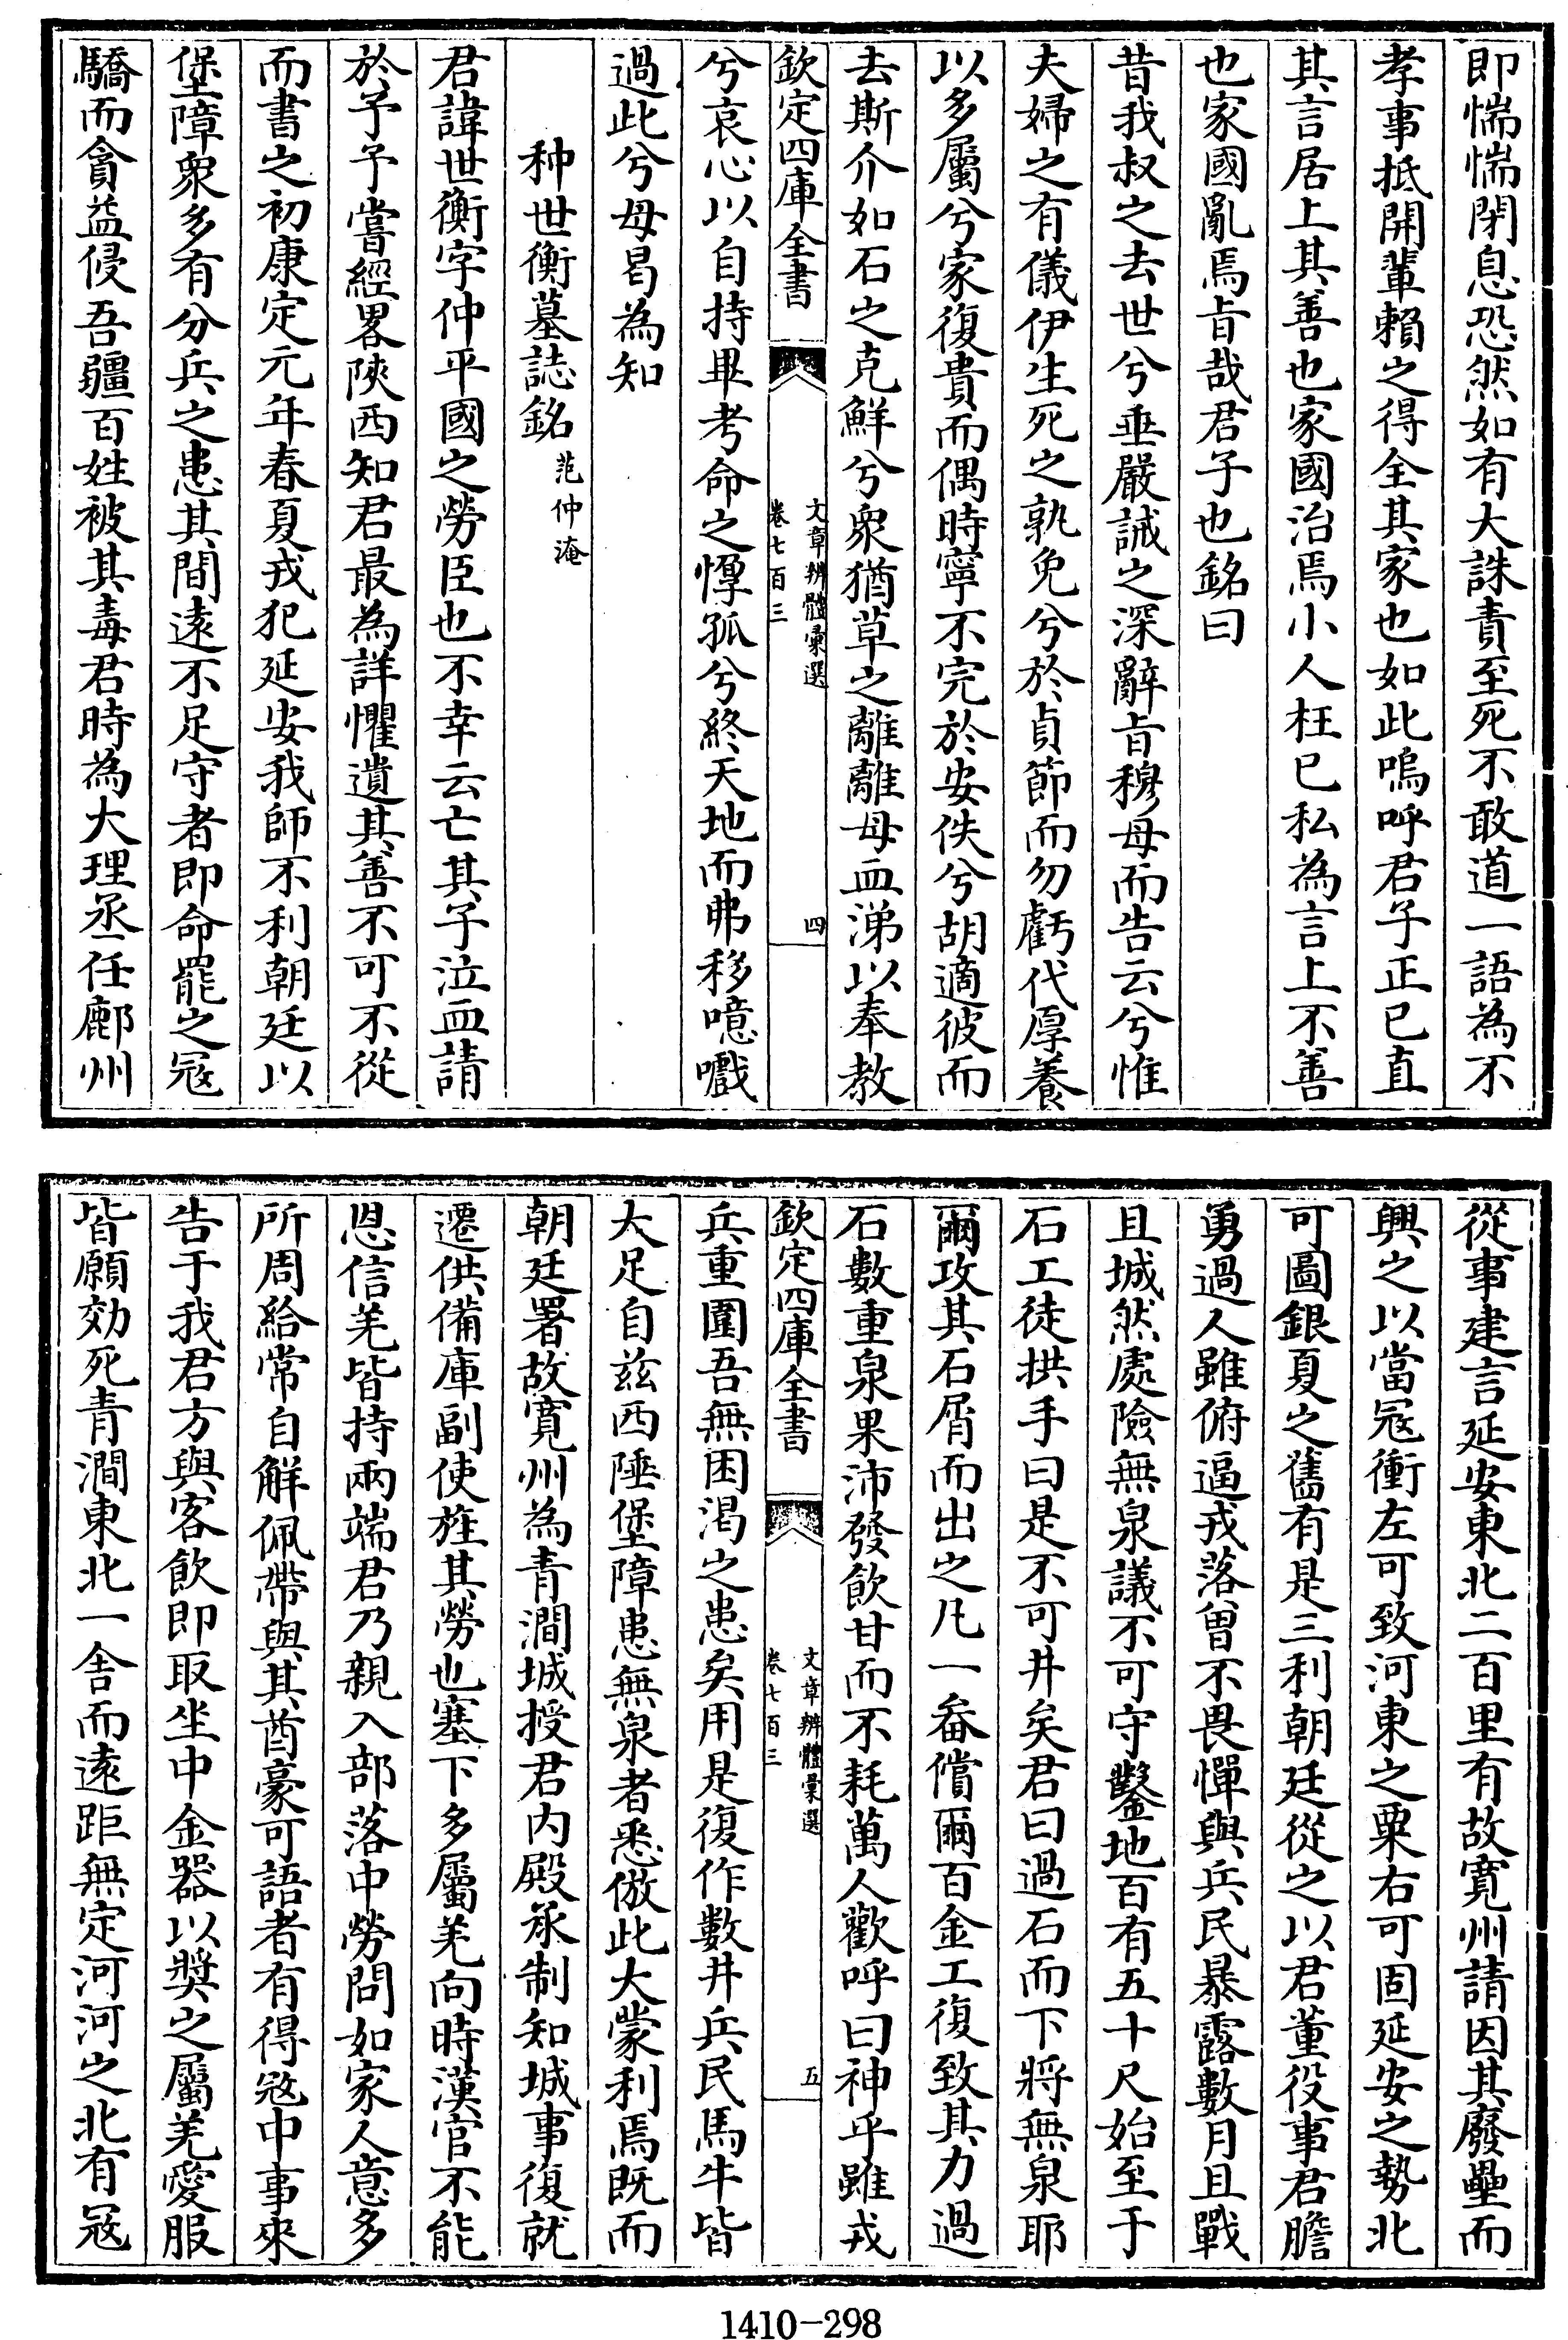 即惴惴閉息恐然如有大誅責至死不敢道一語為不
孝事抵開輩賴之得全其家也如此嗚呼君子正已直
其言居上其善也家國治焉小人枉已私為言上不善
也家國亂焉旨哉君子也銘曰
昔我叔之去世兮垂嚴誡之深辭旨穆母而告云兮惟
夫婦之有儀伊生死之孰免兮於貞節而勿虧代厚養
以多屬兮家復貴而偶時寧不完於安佚兮胡適彼而
去斯介如石之克鮮兮衆猶草之離離母血涕以奉教
欽定四庫全書
文章辨體彙選
卷七百三
四
兮哀心以自持畢考命之惸孤兮終天地而弗移噫嚱
過此兮母曷為知
种世衡墓誌銘 范仲淹
君諱世衡字仲平國之勞臣也不幸云亡其子泣血請
於予予嘗經畧陜西知君最為詳懼遺其善不可不從
而書之初康定元年春夏戎犯延安我師不利朝廷以
堡障衆多有分兵之患其間遠不足守者即命罷之宼
驕而貪益侵吾疆百姓被其毒君時為大理丞任鄜州
從事建言延安東北二百里有故寛州請因其廢壘而
興之以當宼衝左可致河東之粟右可固延安之勢北
可圖銀夏之舊有是三利朝廷從之以君董役事君膽
勇過人雖俯逼戎落曾不畏憚與兵民暴露數月且戰
且城然處險無泉議不可守鑿地百有五十尺始至于
石工徒拱手曰是不可井矣君曰過石而下將無泉耶
爾攻其石屑而出之凡一畚償爾百金工復致其力過
石數重泉果沛發飲甘而不耗萬人歡呼曰神乎雖戎
欽定四庫全書
文章辨體彙選
卷七百三
五
兵重圍吾無困渴之患矣用是復作數井兵民馬牛皆
大足自兹西陲堡障患無泉者悉倣此大蒙利焉既而
朝廷署故寛州為青澗城授君内殿承制知城事復就
遷供備庫副使旌其勞也塞下多屬羌向時漢官不能
恩信羌皆持兩端君乃親入部落中勞問如家人意多
所周給常自解佩帶與其酋豪可語者有得宼中事來
告于我君方與客飲即取坐中金器以奬之屬羌愛服
皆願効死青澗東北一舍而遠距無定河河之北有宼
1410-298